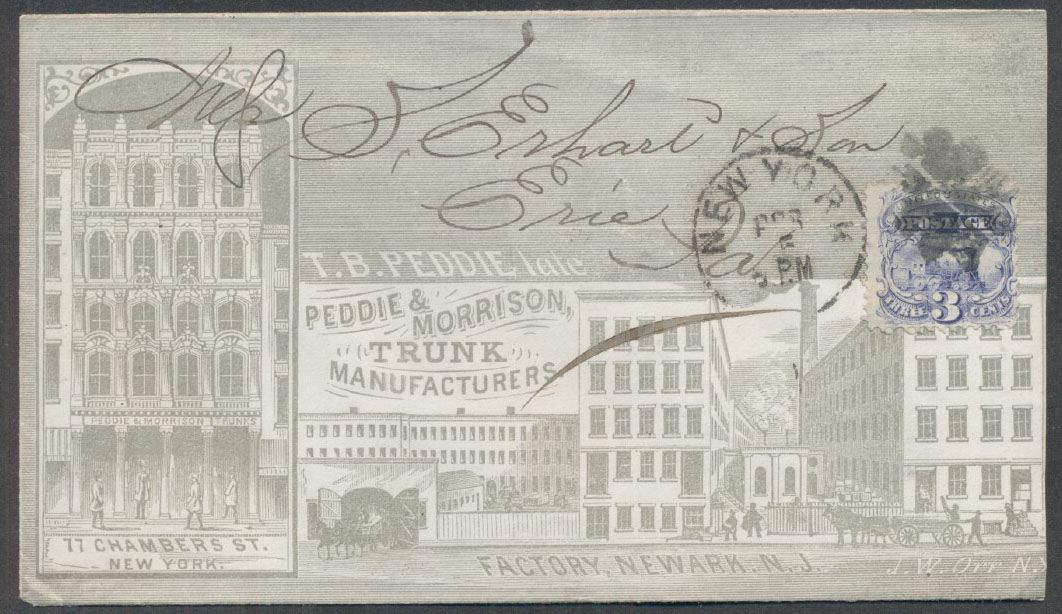 Mess S. Erhart & Son
Erie
Pa
NEW YORK
FEB
5
PM
POSTAGE
THREE 3 CENTS
T. B. PEDDIE, late
PEDDIE &
MORRISON,
TRUNK
MANUFACTURERS
PEDDIE & MORRISON TRUNKS
77 CHAMBERS ST.
NEW YORK.
FACTORY, NEWARK, N. J.
J. W. Orr N.Y